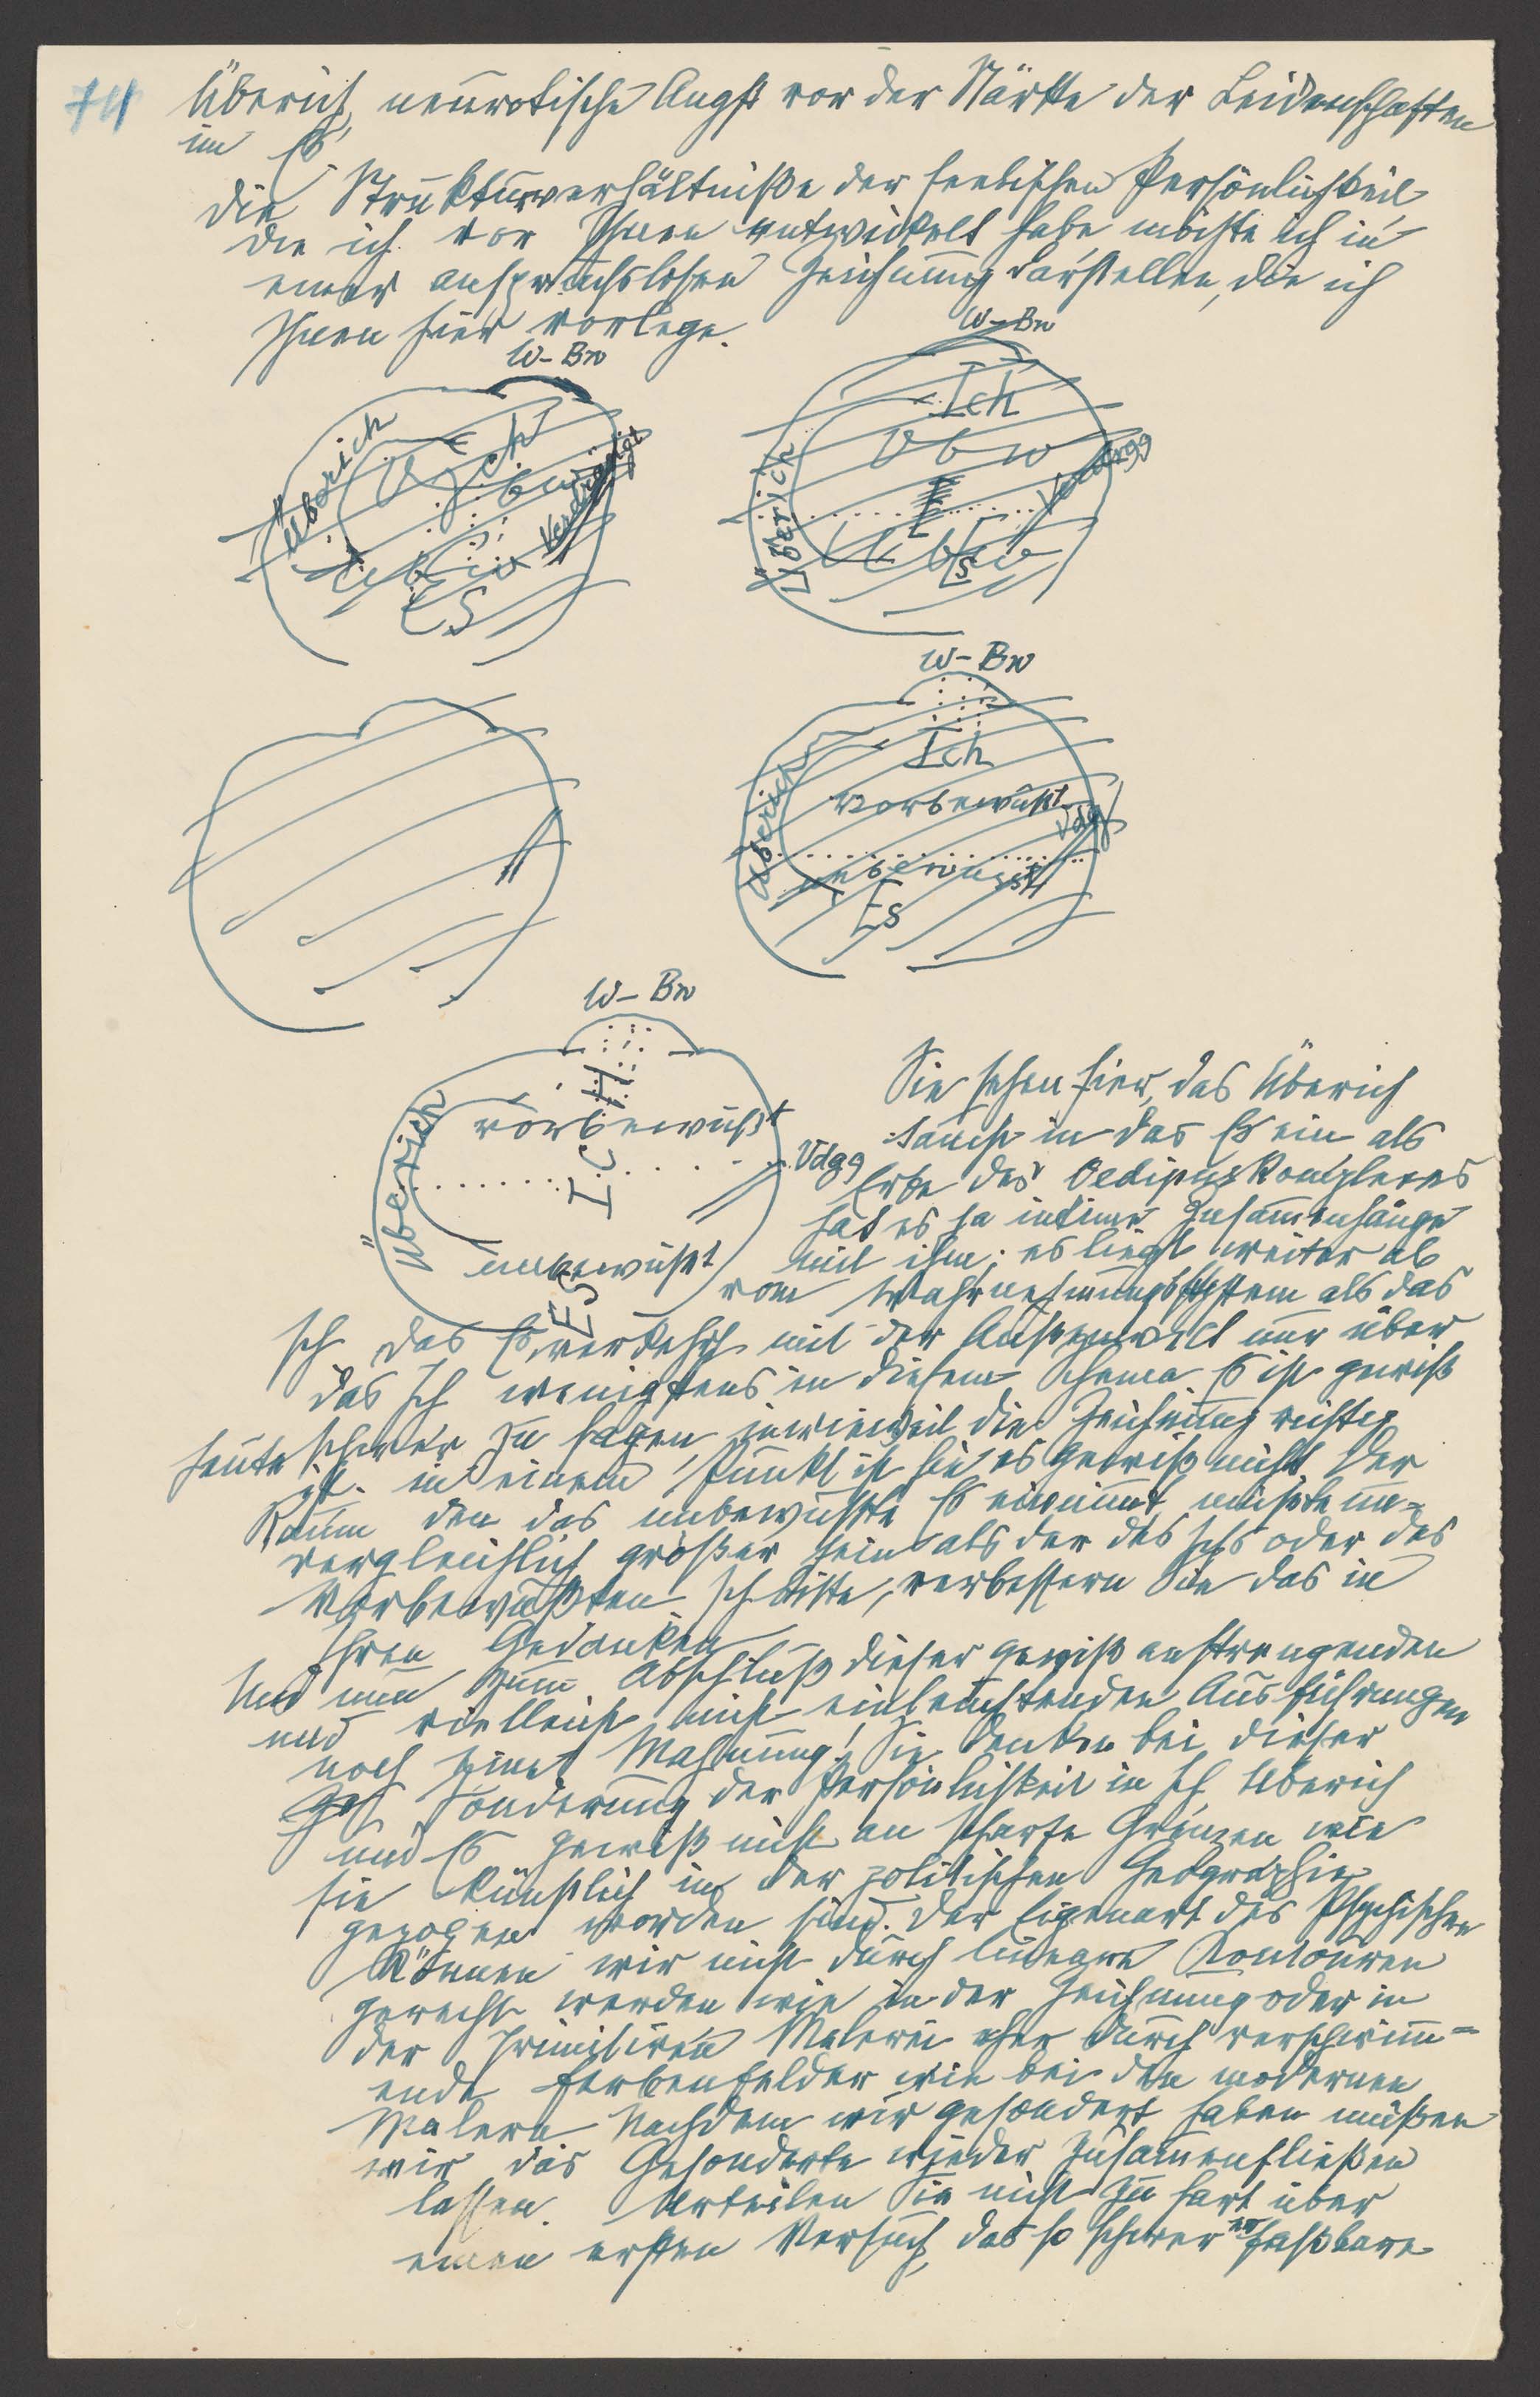 74
Überich, neurotische Angst vor der Stärke der Leidenschaften
im Es
Die Strukturverhältniße der seelischen Persönlichkeit
die ich vor Ihnen entwickelt habe möchte ich in
einer anspruchslosen Zeichnung darstellen, die ich
Ihnen hier vorlege.
W-Bw
Überich
Ich
Vbw
Verdrängt
Ubw
ES
W-Bw
Ich
Vbw
Überich
Verdrgg
Ubw
Es
W-Bw
Ich
Überich
vorbewußt
Vdg
unbewußt
Es
W-Bw
ICH
Überich
vorbewußt
Vdgg
unbewußt
ES
Sie sehen hier, das Überich
taucht in das Es ein als
Erbe des Oedipuskomplexes
hat es ja intime Zusammenhänge
mit ihm; es liegt weiter ab
vom Wahrnehmungssystem als das
Ich Das Es verkehrt mit der Außenwelt nur über
das Ich wenigstens in diesem Schema Es ist gewiß
heute schwer zu sagen inwieweit die Zeichnung richtig
ist. in einem Punkt ist sie es gewiß nicht Der
Raum den das unbewußte Es einnimmt müßte un-
vergleichlich größer sein als der des Ichs oder des
Vorbewußten Ich bitte, verbessern Sie das in
Ihren Gedanken
Und nun zum Abschluß dieser gewiß anstrengenden
und vielleicht nicht einleuchtenden Ausführungen
noch eine Mahnung! Sie denken bei dieser
Sonderung der Persönlichkeit in Ich Überich
und Es gewiß nicht an scharfe Grenzen wie
sie künstlich in der politischen Geographie
gezogen worden sind. Der Eigenart des Psychischen
können wir nicht durch lineare Kontouren
gerecht werden wie in der Zeichnung oder in
der primitiven Malerei eher durch verschwimm-
ende Farbenfelder wie bei den modernen
Malern Nachdem wir gesondert haben müßen
wir das Gesonderte wieder zusammenfließen
lassen. Urteilen Sie nicht zu hart über
einen ersten Versuch, das so schwer erfaßbare